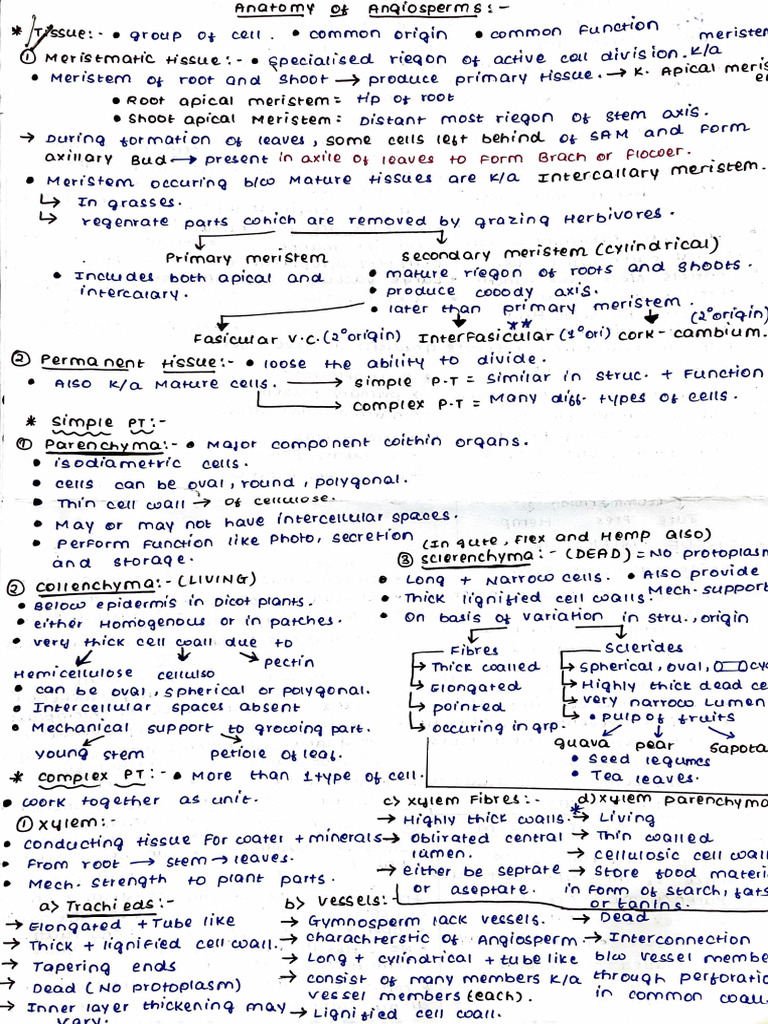 Anatomy of Angiosperms:-
* Tissue:- • group of cell. • common origin • common Function
meristem
① Meristmatic tissue:- • specialised rieqon of active cell division. K/a
• Meristem of root and shoot → produce primary tissue. → K. Apical meris
• Root apical meristem = tip of root
• Shoot apical Meristem: Distant most rieqon of stem axis.
→ During formation of leaves, some cells left behind of SAM and Form
axillary Bud → present in axile of leaves to Form Brach or Flower.
• Meristem occuring b/w Mature tissues are K/a Intercallary meristem.
↳ In grasses.
↳ regenrate parts which are removed by grazing Herbivores.
Primary meristem
• Includes both apical and
intercalary.
secondary meristem (cylindrical)
• mature rieqon of roots and shoots.
• produce woody axis.
• later than primary meristem.
Fasicular V.C. (2° origin) Interfasicular (1° ori) cork-cambium. (2° origin)
**
② Permanent tissue:- • loose the ability to divide.
• Also K/a Mature cells. → simple P.T = Similar in struc. + Function
→ complex P.T = Many diff. types of cells.
* Simple PT:-
① Parenchyma:- • Major component within organs.
• isodiametric cells.
• cells can be oval, round, polygonal.
• Thin cell wall → of cellulose.
• May or may not have intercellular spaces.
• Perform Function like Photo, secretion
and storage.
② Collenchyma:- (LIVING)
• Below epidermis in Dicot plants.
• either Homogenous or in patches.
• very thick cell wall due to
Hemicellulose cellulso pectin
• can be oval, spherical or polygonal.
• Intercellular spaces absent
• Mechanical support to growing part.
young stem petiole of leaf.
(In qute, Flex and Hemp also)
③ sclerenchyma:- (DEAD) = NO protoplasm
• Long + Narrow cells. • Also provide
• Thick lignified cell walls. Mech. support
• On basis of variation in stru., origin
Fibres
→ Thick walled
→ Elongated
→ pointed
→ occuring in grp.
Sclerides
→ spherical, oval, cy
→ Highly thick dead ce
→ very narrow Lumen
→ • pulp of fruits
guava pear sapota
• Seed legumes
• Tea leaves.
* Complex PT:- • More than 1 type of cell.
• work together as unit.
① Xylem:-
• conducting tissue For water + minerals
• From root → stem → leaves.
• Mech. strength to plant parts.
a) Trachieds:-
→ Elongated + Tube like
→ Thick + lignified cell wall.
→ Tapering ends
→ Dead (No protoplasm)
→ Inner layer thickening may
vary.
b) Vessels:-
→ Gymnosperm lack vessels.
→ charachterstic of Angiosperm.
→ Long + cylindrical + tube like
→ consist of many members K/a
vessel members (each).
→ Lignified cell wall.
→ Dead
→ Interconnection
b/w vessel membe
through perforatio
in common wall.
c) xylem Fibres:-
→ Highly thick walls.
→ oblirated central
lumen.
→ either be septate
or aseptate.
* d) xylem parenchyma
→ Living
→ Thin walled
→ cellulosic cell wall
→ Store food materi
in form of starch, fats
or tanins.